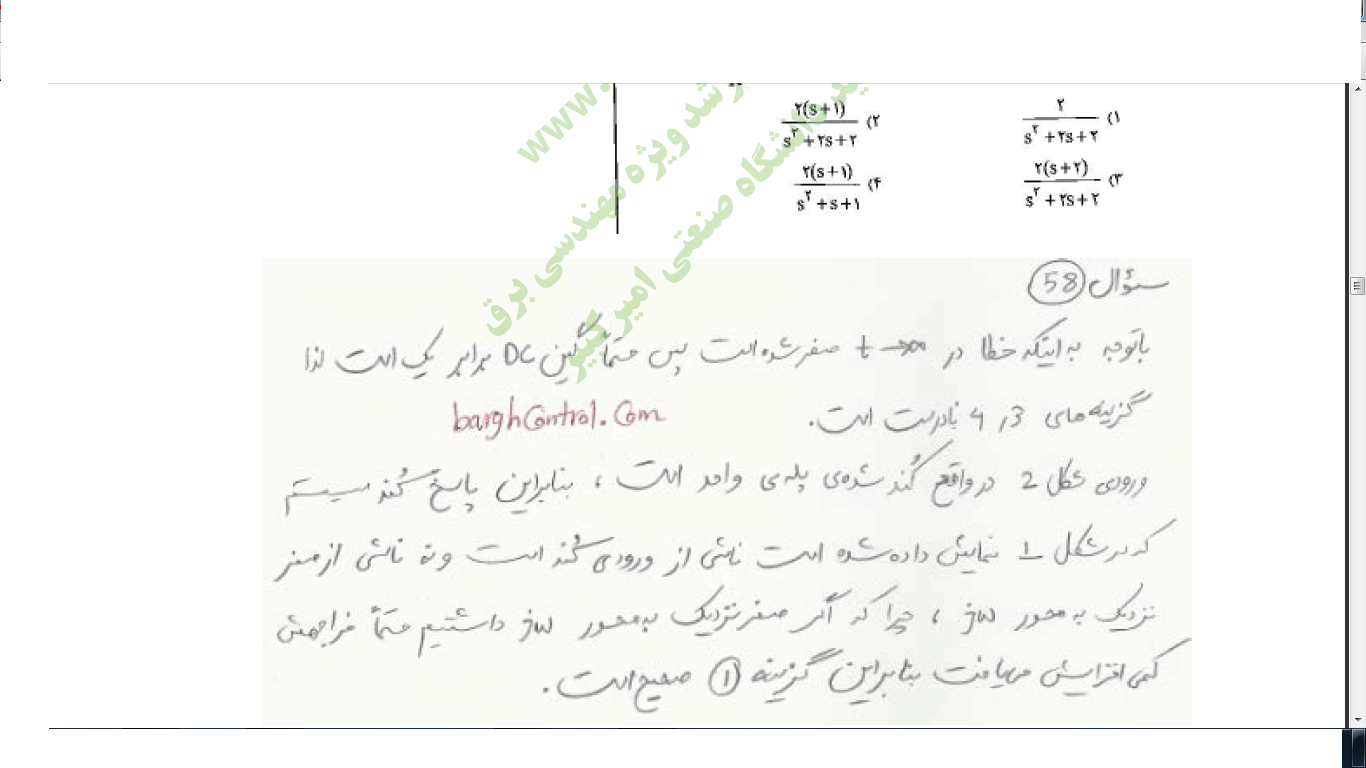 ۱) ۲ / s^۲ + ۲s + ۲
۲) ۲(s+۱) / s^۲ + ۲s + ۲
۳) ۲(s+۲) / s^۲ + ۲s + ۲
۴) ۲(s+۱) / s^۲ + s + ۱
www.
رشد ویژه مهندسی برق
دانشگاه صنعتی امیرکبیر
سؤال 58
باتوجه به اینکه خطا در t→∞ صفر شده است پس حتماً گین DC برابر یک است لذا
گزینه های 3 و 4 نادرست است.
barghControl.Com
ورودی شکل 2 در واقع کُند شده‌ی پله‌ی واحد است، بنابراین پاسخ کُند سیستم
که در شکل 1 نمایش داده شده است ناشی از ورودی کُند است و نه ناشی از صفر
نزدیک به محور jω، چرا که اگر صفر نزدیک به محور jω داشتیم حتماً فراجهش
کمی افزایش می‌یافت بنابراین گزینه ۱ صحیح است.